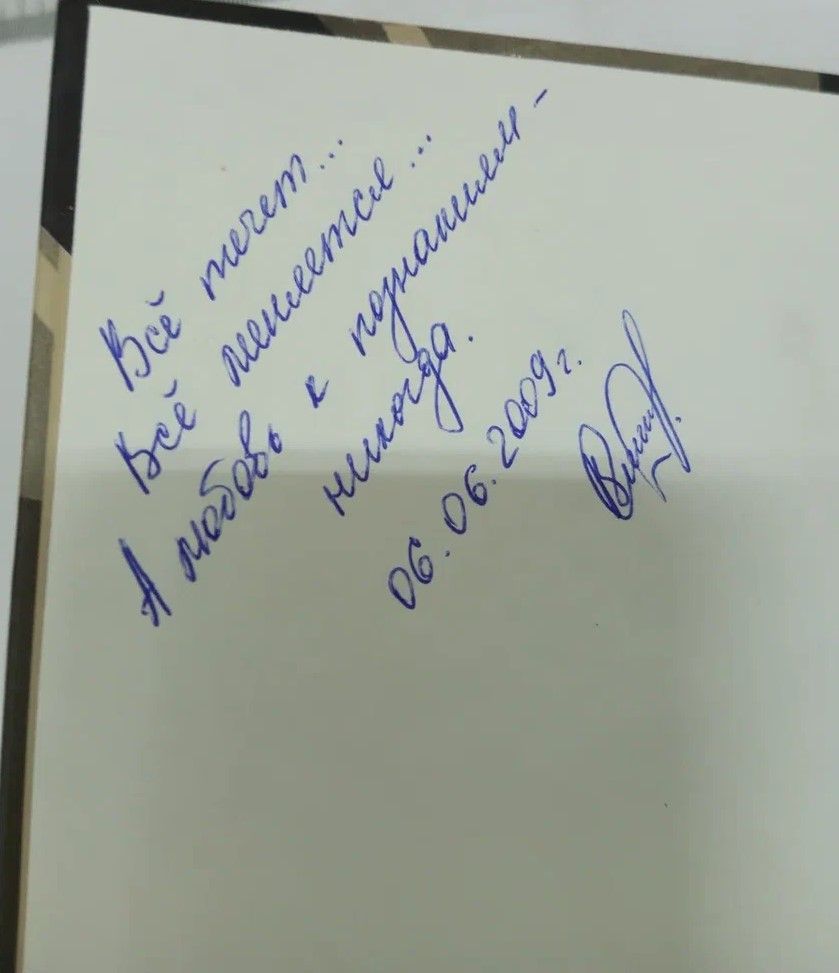 Всё течет...
Всё меняется...
А любовь к познаниям -
никогда.
06.06.2009г.